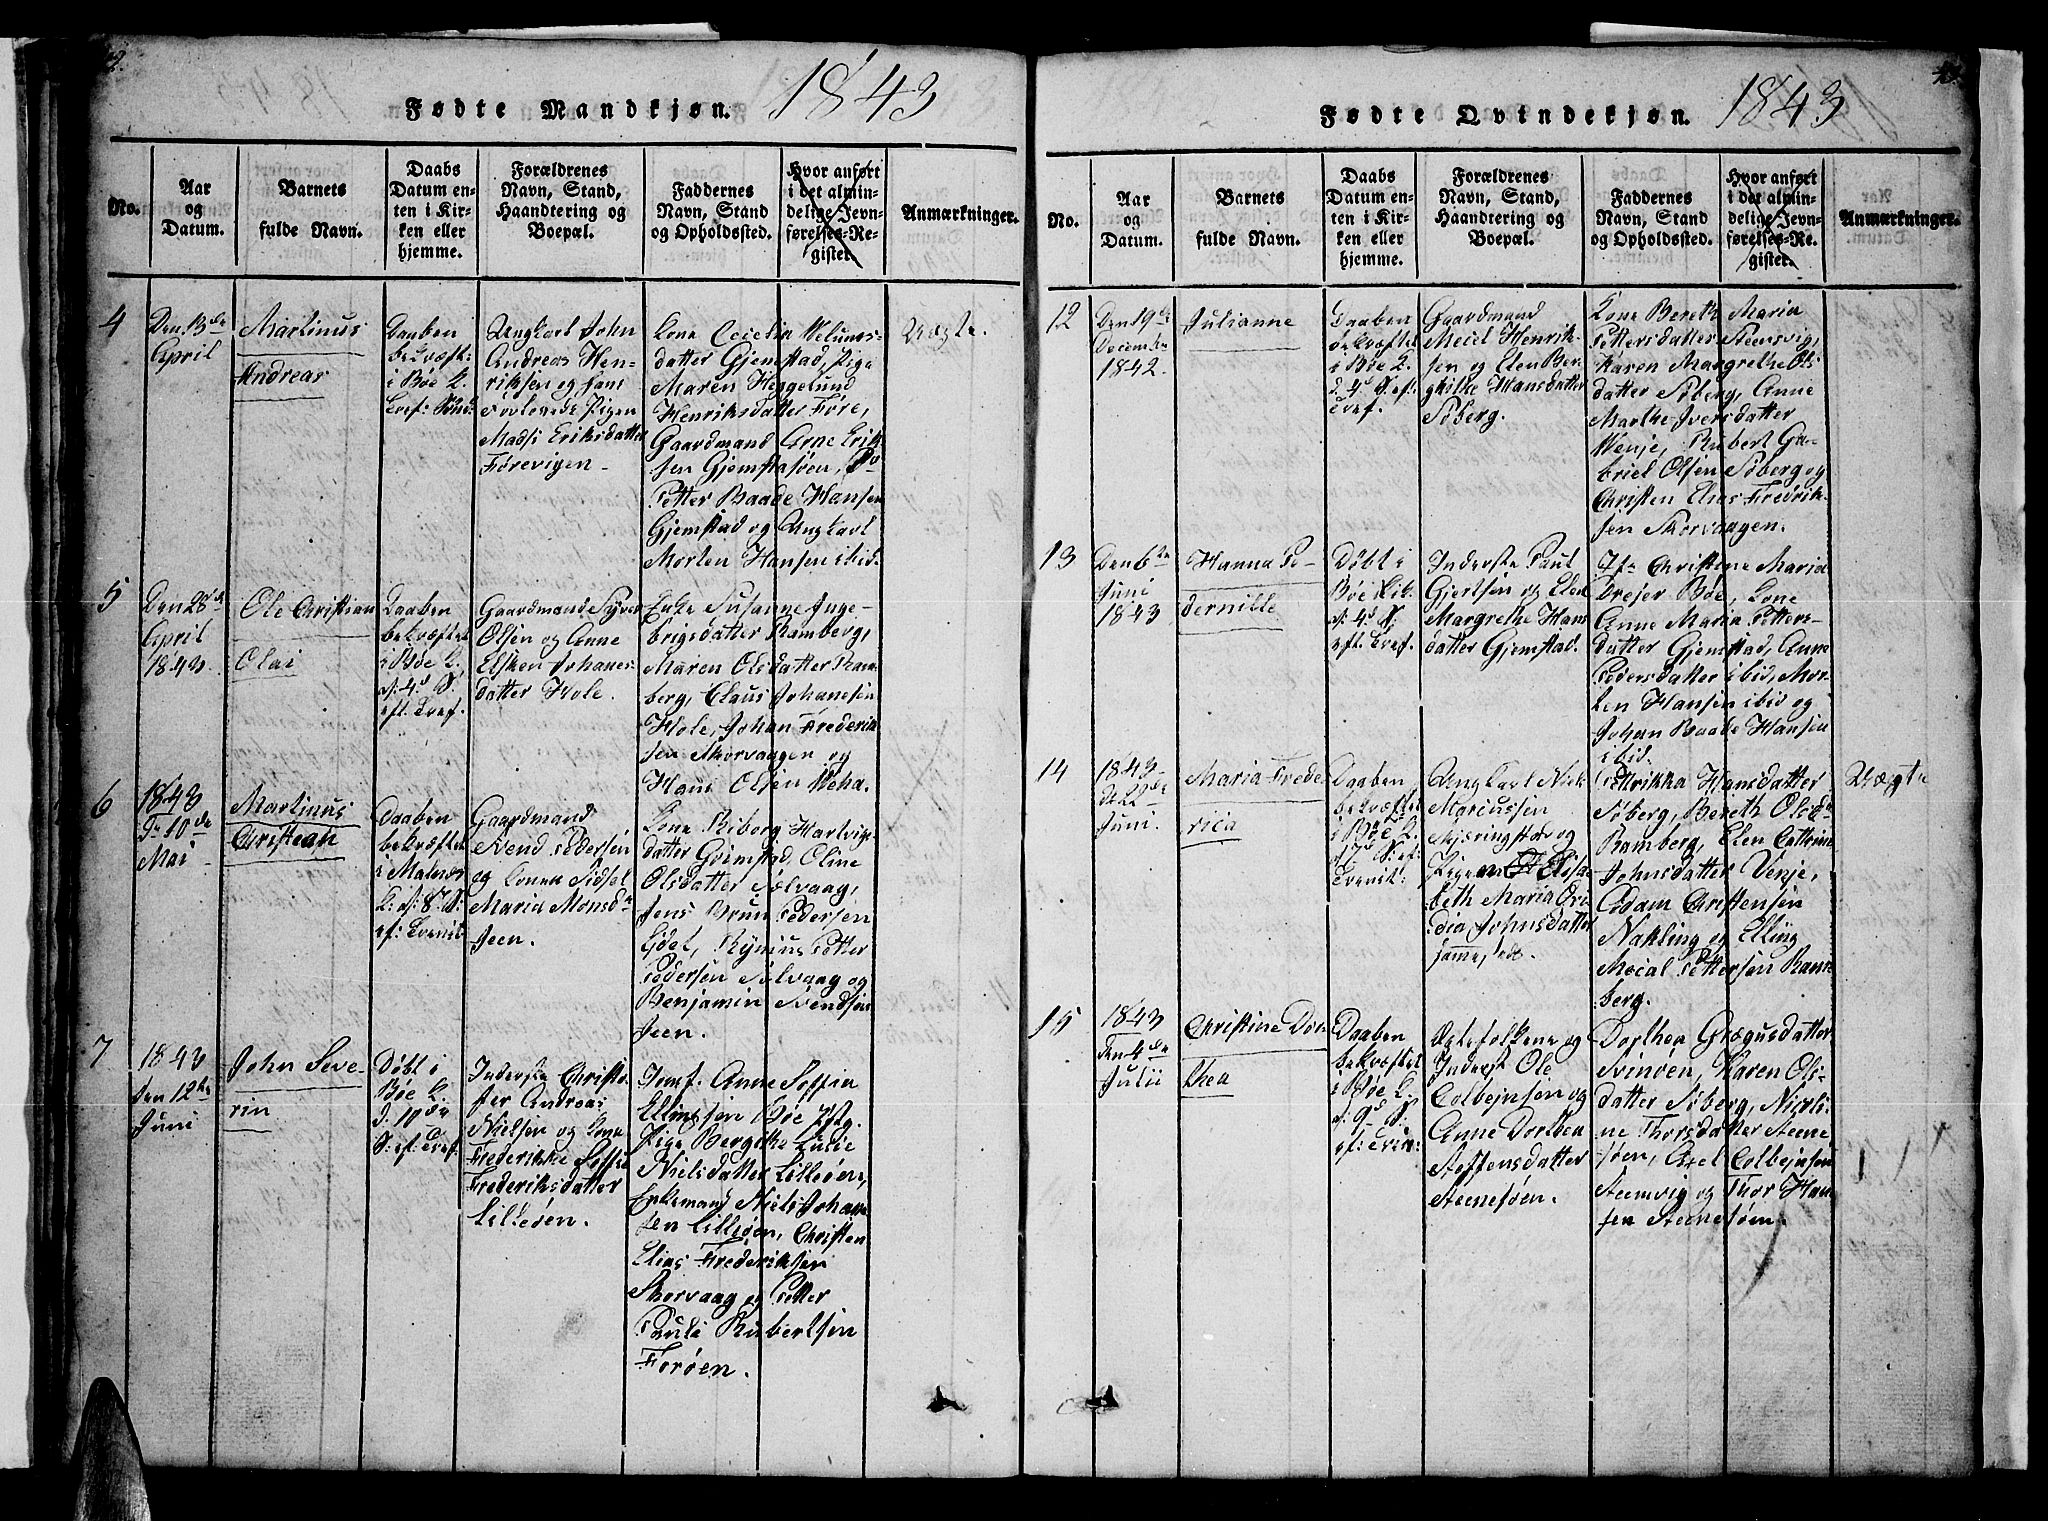 Fødte Mandkjøn. 1843
No.
Aar
og
Datum.
Barnets
fulde Navn.
Daabs
Datum en-
ten i Kir-
ken eller
hjemme.
Forældrenes
Navn, Stand,
Haandtering og
Boepæl.
Faddernes
Navn, Stand
og Opholdssted.
Hvor anført
i det almin-
delige Jevn-
førelses-Re-
gister.
Anmærkninger.
4
Den 13de
April
Martinus
Andreas
Daaben
bekræftet
i Bøe K.
Ungkarl John
Andreas Hen-
riksen og hans
trolovede Pigen
Madsi Eriksdatter
Førevigen
Kone Cecelia Velums-
datter Gjemstad, Pige
Maren Heggelund
Henriksdatter Føre,
Gaardmand Arne Erik-
sen Gjemstasøen,
Petter Baade Hansen
Gjemstad og Ungkarl
Morten Hansen ibid.
Uægte.
5
Den 28de
April
1843
Ole Christian
Olai
Daaben
bekræftet
i Bøe K.
d. 4d S.
eft. Tref.
Gaardmand Syver
Olsen og Anne
Elsken Johanes-
datter Hole.
Enke Susanne Inge-
brigsdatter Ramberg,
Maren Olsdatter Ram-
berg, Claus Johanesen
Hole, Johan Frederik-
sen Skorvaagen og
Hans Olsen Veha.
6
1843
D. 10de
Mai
Martinus
Christian
Daaben
bekræftet
i Malnes
K. d. 8d S.
ef: Trenit.
Gaardmand
Svend Pedersen
og Konen Sidsel
Maria Monsdr
Jeen.
Kone Riborg Hartvigs-
datter Grimstad, Oline
Olsdatter Sølvaag,
Jens Brun Pedersen
Eidet, Rynius Petter
Pedersen Sølvaag og
Benjamin Svendsen
Jeen.
7
1843
den 12te
Juni
John Seve
rin
Døbt i
Bøe K.
d. 10de
S. ef: Tref.
Inderste Christo-
fer Andreas
Nielsen og Kone
Frederikke Soffie
Frederiksdatter
Lilleøen.
Jomf: Anne Soffia
Ellingsen Bøe Pstg.
Pige Bergitha Lucie
Nielsdatter Lilleøen,
Enkemand Niels Johan-
sen Lilleøen, Christen
Elias Frederiksen
Skorvaag og Petter
Pauli Rubertsen
Forøen.
Fødte Qvindekjøn. 1843
No.
Aar
og
Datum.
Barnets
fulde Navn.
Daabs
Datum en-
ten i Kir-
ken eller
hjemme.
Forældrenes
Navn, Stand,
Haandtering og
Boepæl.
Faddernes
Navn, Stand
og Opholdssted.
Hvor anført
i det almin-
delige Jevn-
førelses-Re-
gister.
Anmærkninger.
12
Den 19de
December
1842.
Julianne
Daaben
bekræftet
i Bøe K.
d. 4d S. ef:
Tref.
Gaardmand
Meiel Henrik-
sen og Elen Ber-
githe Hansdatter
Søberg.
Kone Bereth Maria
Pettersdatter Steensvig,
Karen Margrethe Ols
datter Søberg, Anne
Marthe Iversdatter
Venje, Rubert Ga-
briel Olsen Søberg og
Christen Elias Fredrik-
sen Skorvaagen.
13
Den 6te
Juni
1843
Hanna Pe-
dernille
Døbt i
Bøe K.
d. 4d S.
eft. Tref.
Inderste Paul
Gjertsen og Elen
Margrethe Hans
datter Gjemstad.
Jfr Christine Maria
Drejer Bøe, Kone
Anne Maria Petters-
datter Gjemstad, Anne
Pedersdatter ibid, Mor-
ten Hansen ibid og
Johan Baade Hansen
ibid.
14
1843
d. 22de
Juni.
Maria Frede-
rica
Daaben
bekræftet
i Bøe K.
d. 7d S. ef:
Trenit:
Ungkarl Niek
Marcussen
Skjeringstad og
Pigen Elisa-
beth Maria Ove
dia Johnsdatter
samme, sted.
Petrikka Hansdatter
Søberg, Bereth Olsdr
Ramberg, Elen Cathrine
Johnsdatter Venje,
Adam Christensen
Nakling og Elling
Meial Pettersen Ram-
berg.
Uægte
15
1843
den 4de
Julii
Christine Dor-
thea
Daaben
bekræftet
i Bøe K.
d. 9d S.
ef: Trin:
Ægtefolkene og
Inderst Ole
Colbejnsen og
Anne Dorthea
Steffensdatter
Steenesøen.
Dorthea Grægusdatter
Svinøen, Karen Ols-
datter Søberg, Nicoli-
ne Thorsdatter Steene
søen, Axel Colbejnsen
Steenvig og Thor Han-
sen Steenesøen.